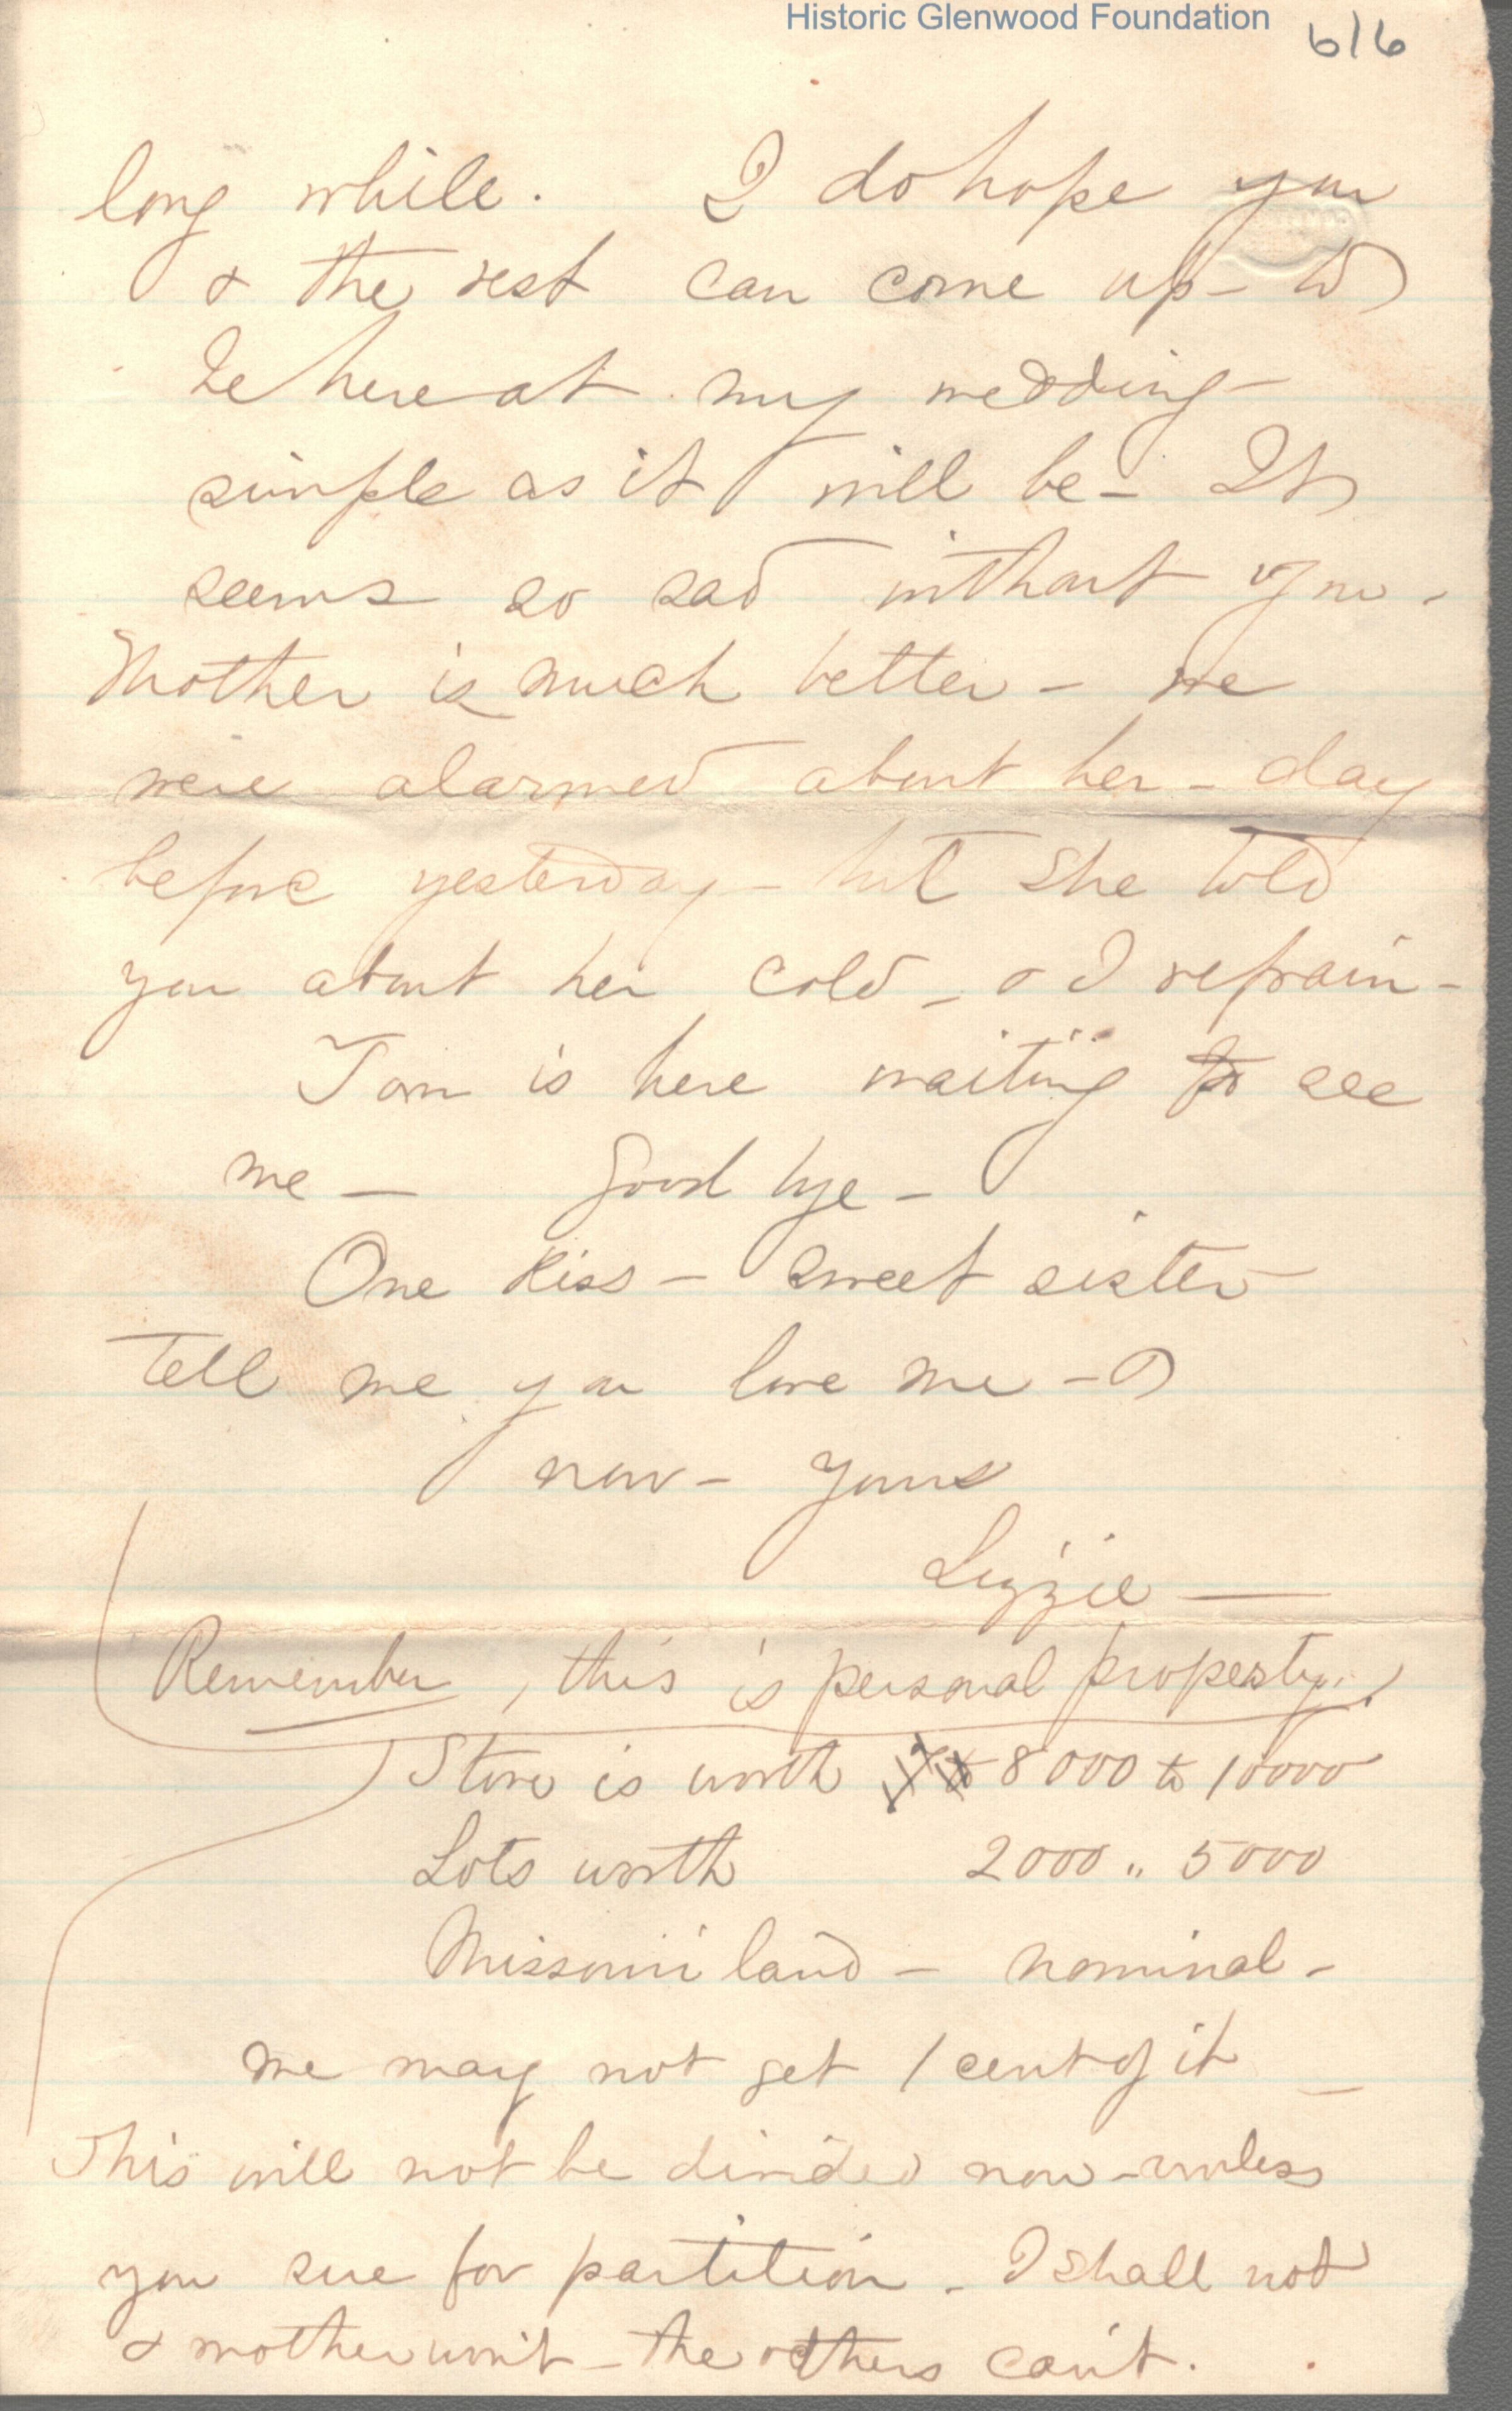 Historic Glenwood Foundation
6/6
long while. I do hope you
& the rest can come up - to
be here at my wedding -
simple as it will be - It
seems so sad without you -
Mother is much better - we
were alarmed about her - day
before yesterday - but she told
you about her cold - & I refrain -
Tom is here waiting to see
me - Good bye -
One kiss - Sweet sister -
Tell me you love me -
now - yours
Lizzie -
Remember, this is personal property.
Store is worth 8000 to 10000
Lots worth 2000 " 5000
Missouri land - nominal -
we may not get 1 cent of it -
This will not be divided now - unless
you sue for partition - I shall not
& mother won't - the others can't.